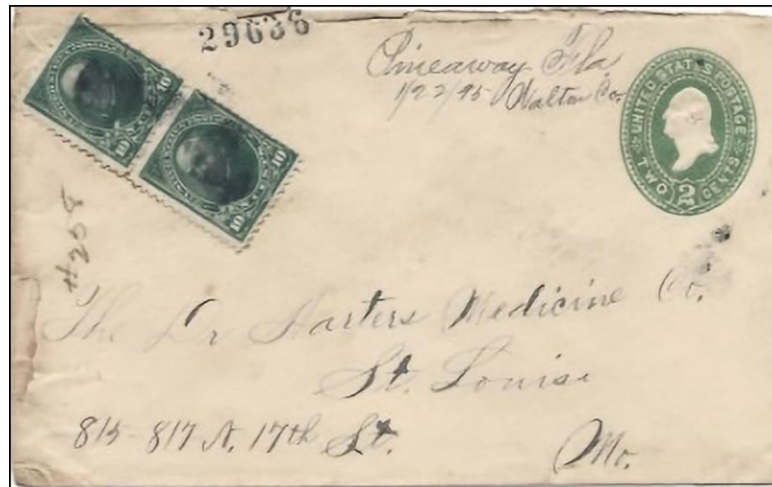 29636
Pineaway Fla
1/22/95 Walton Co.
UNITED STATES POSTAGE
TWO 2 CENTS
10 10
10 10
#258
The Dr Harters Medicine Co.
St. Louise
815-817 N. 17th St. Mo.